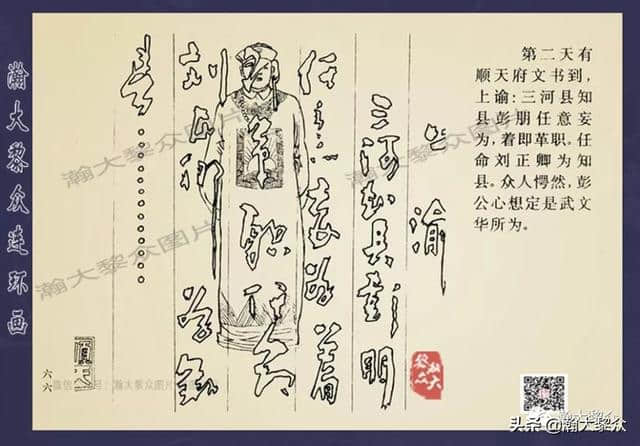 第二天有
顺天府文书到，
上谕：三河县知
县彭朋任意妄
为，着即革职。任
命刘正卿为知
县。众人愕然，彭
公心想定是武文
华所为。
上
谕
三河知县彭朋
任意妄为着
革职
瀚大黎众连环画
六六
瀚大黎众图片
瀚大黎众图片
头条 @瀚大黎众